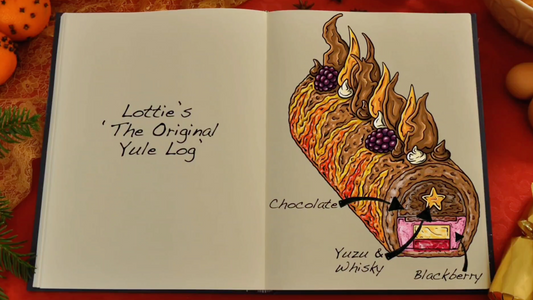 Lottie's
'The Original
Yule Log'
Chocolate
Yuzu &
Whisky
Blackberry